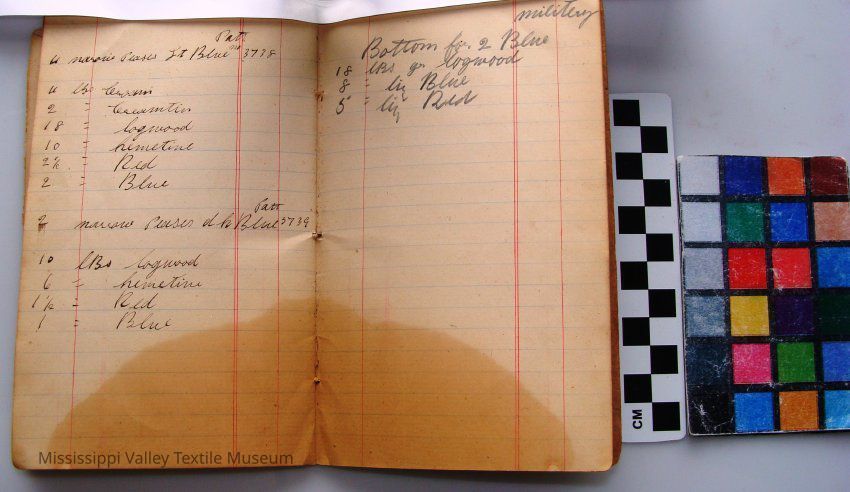 Patt
4 narrow Peases Lt Blue 3738
4 lbs
2 "
18 " logwood
10 " hemetine
2½ " Red
2 " Blue
Patt
2 narrow Peases d k Blue 3739
10 lBs logwood
6 " hemetine
1½ " Red
1 " Blue
militery
Bottom for 2 Blue
18 lBs gr logwood
8 " liq Blue
5 " liq Red
CM
Mississippi Valley Textile Museum